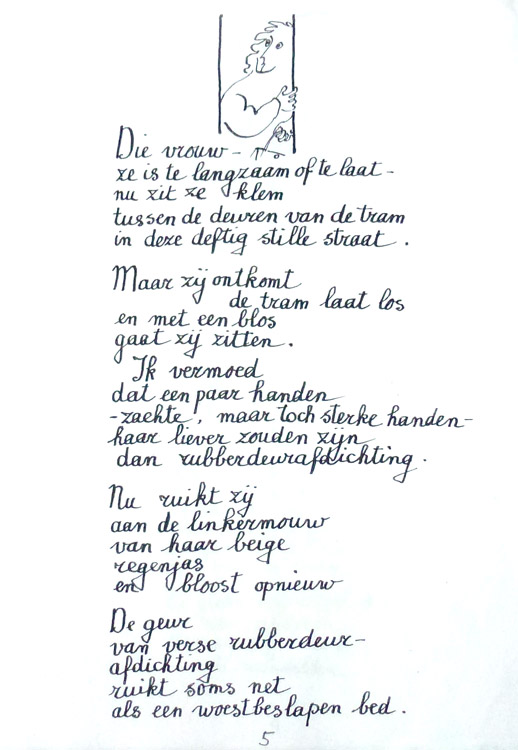 Die vrouw -
ze is te langzaam of te laat -
nu zit ze klem
tussen de deuren van de tram
in deze deftig stille straat.
Maar zij ontkomt
de tram laat los
en met een blos
gaat zij zitten.
Ik vermoed
dat een paar handen
- zachte, maar toch sterke handen -
haar liever zouden zijn
dan rubberdeurafdichting.
Nu ruikt zij
aan de linkermouw
van haar beige
regenjas
en bloost opnieuw
De geur
van verse rubberdeur-
afdichting
ruikt soms net
als een woestbeslapen bed.
5